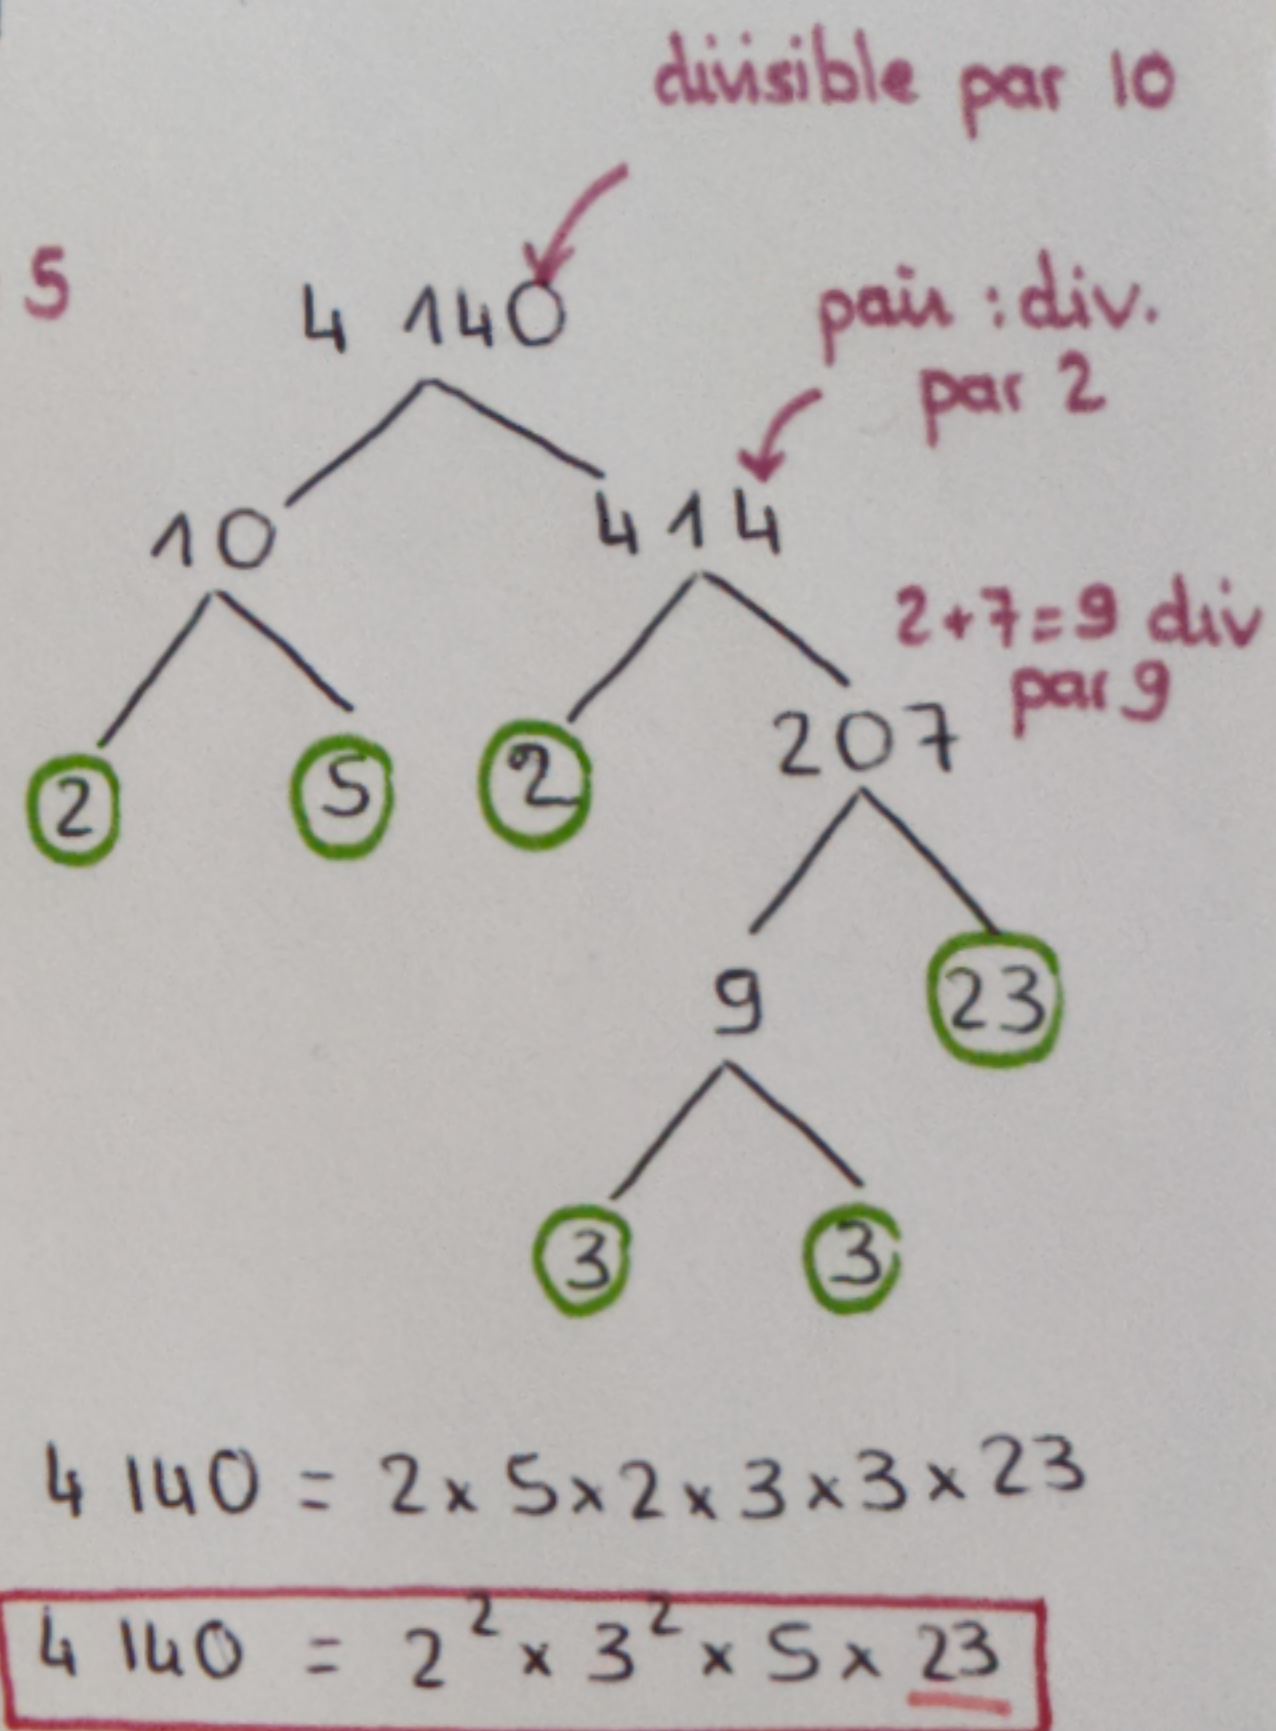 divisible par 10
5
4 140
pair : div.
par 2
10
414
2+7=9 div
par 9
207
2
5
2
9
23
3
3
4 140 = 2 x 5 x 2 x 3 x 3 x 23
4 140 = 2² x 3² x 5 x 23